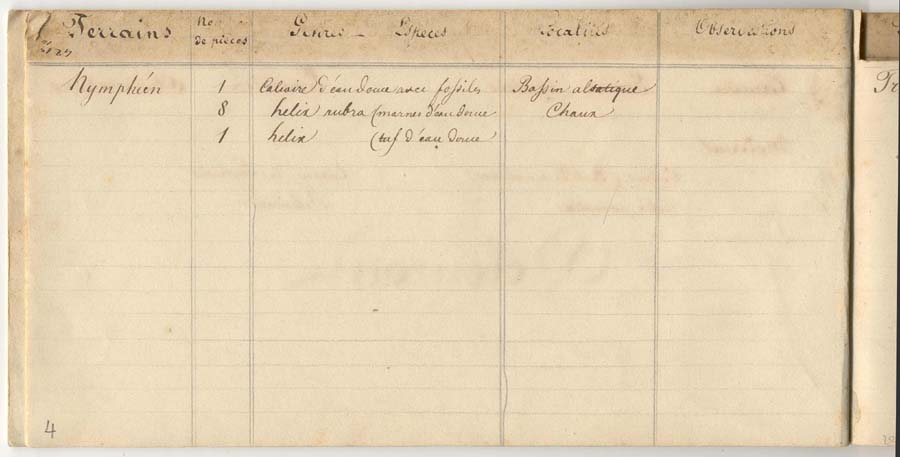 Terrains No de pièces Genres — Espèces Localités Observations
Nymphéen 1 Calcaire d'eau douce avec fossiles Bassin alsatique
8 helix rubra (marnes d'eau douce Chaux
1 helix (tuf d'eau douce
4
Te